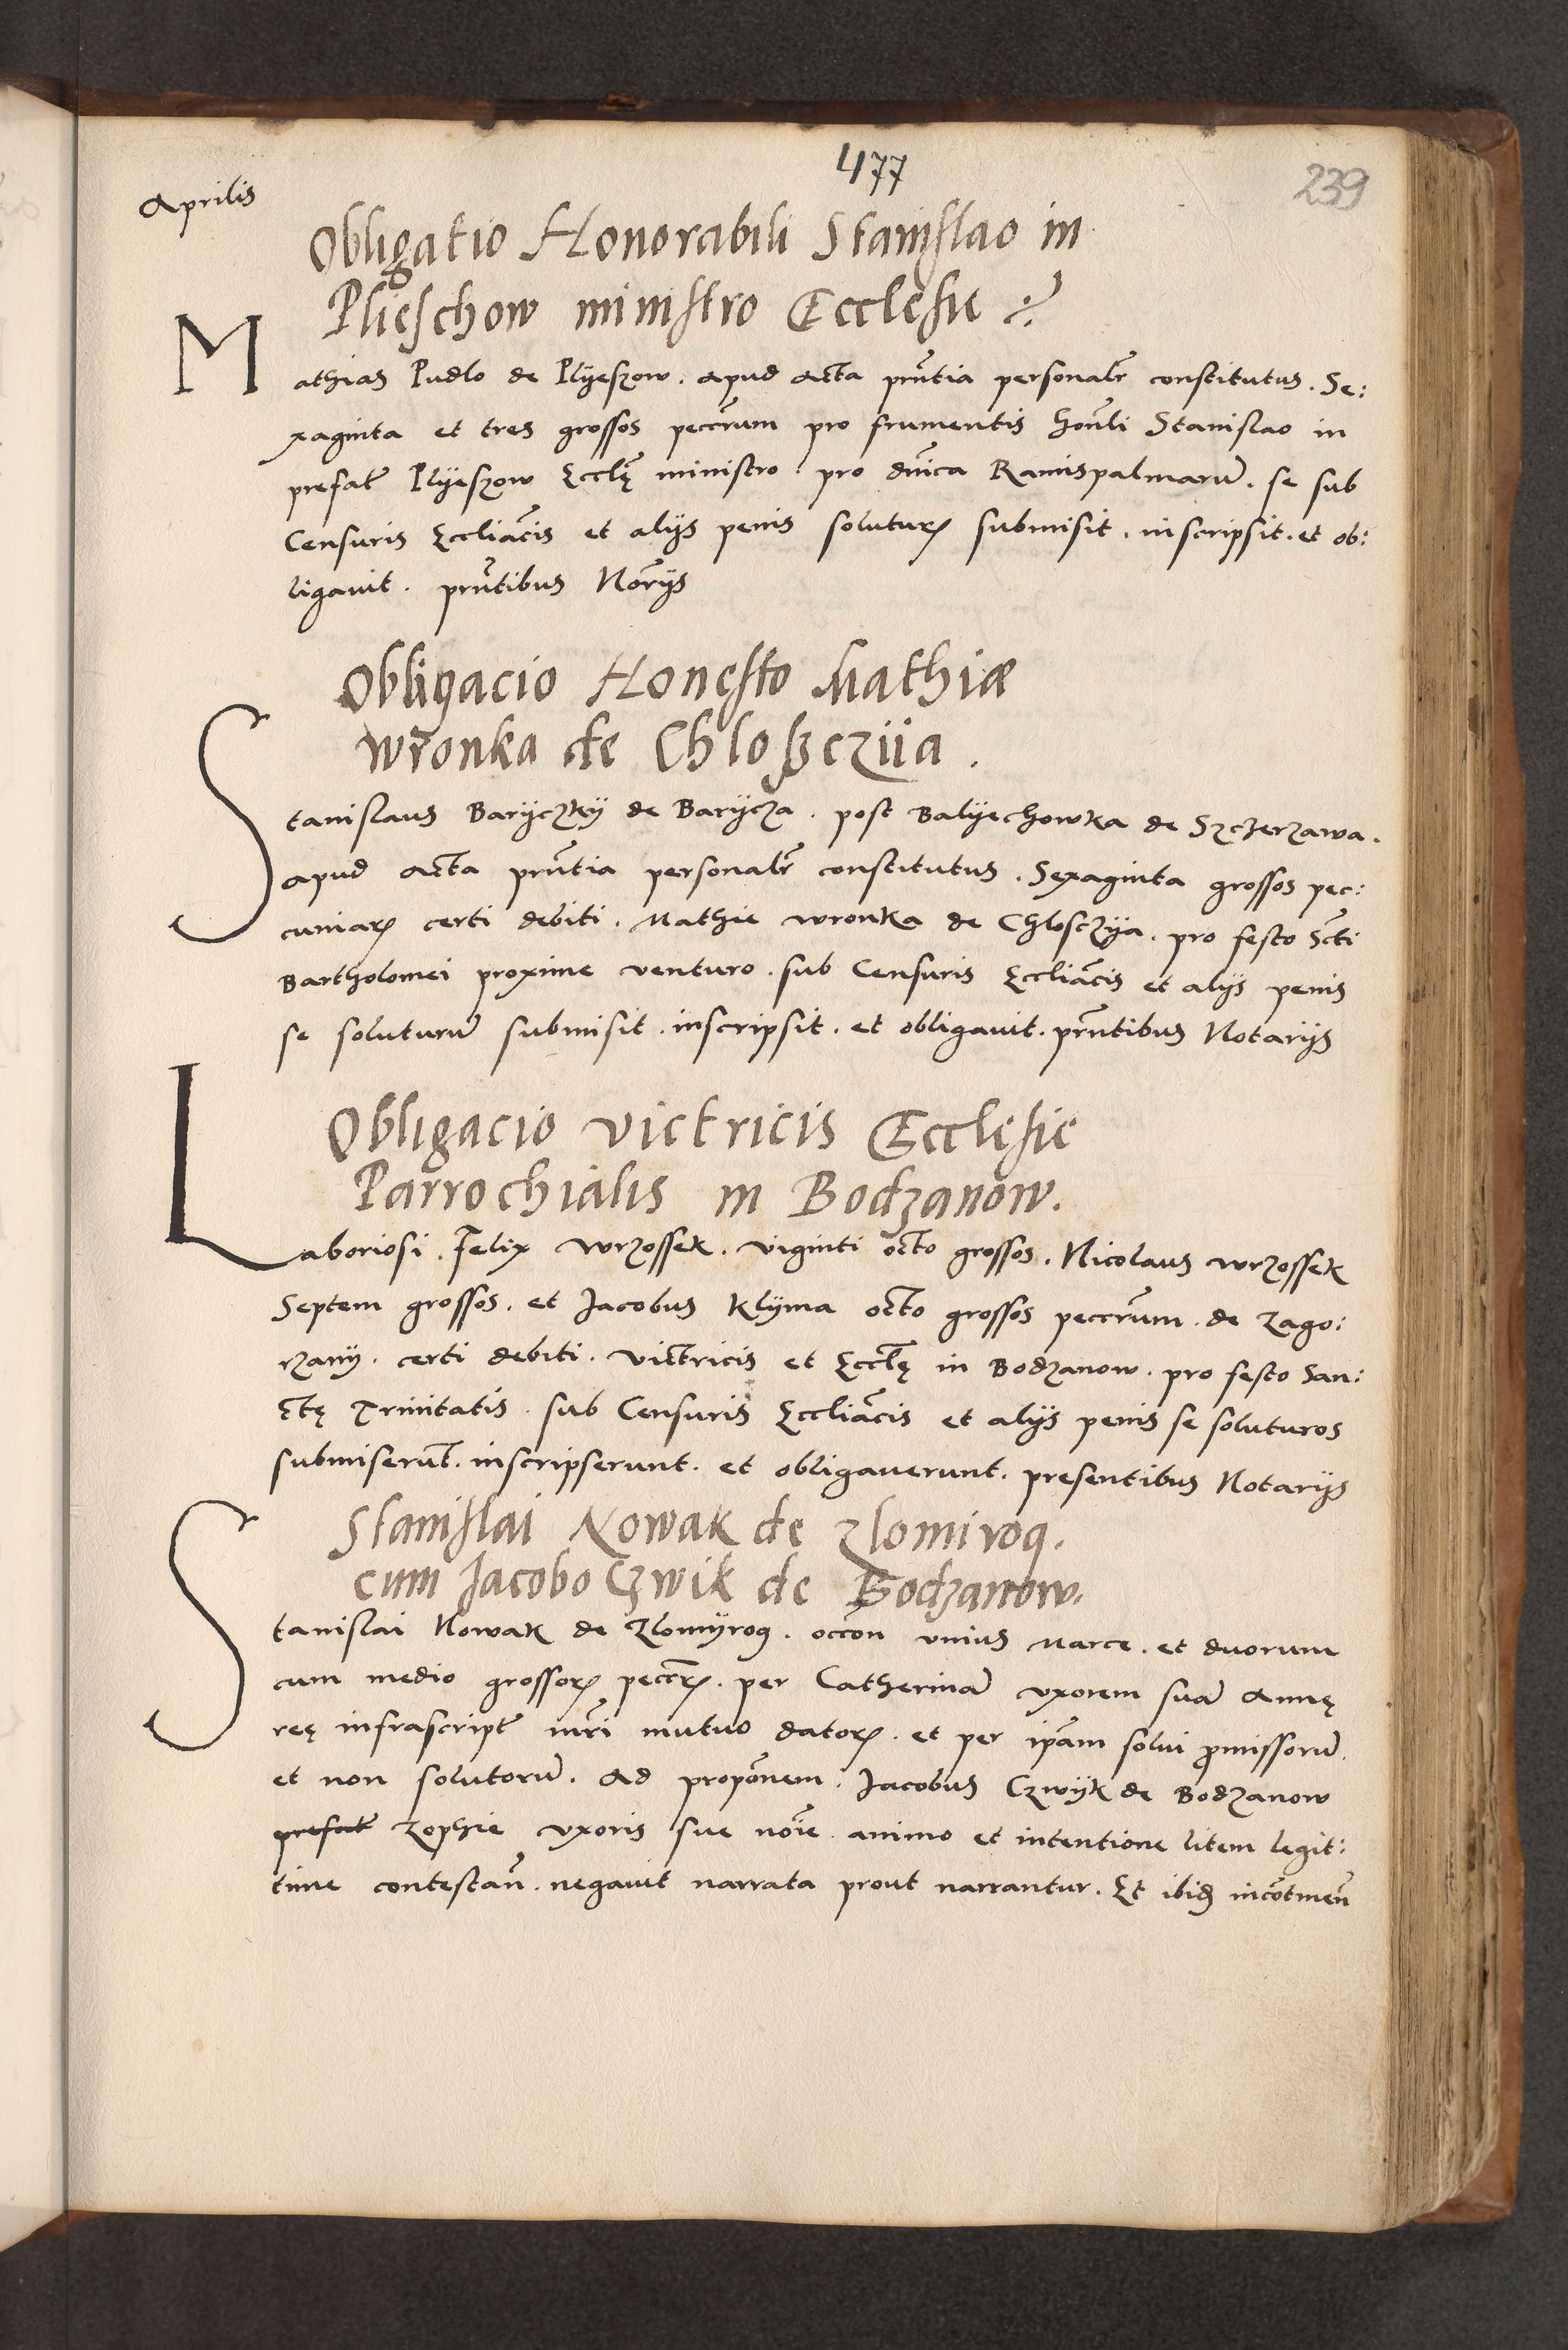 477
239
Aprilis
Obligatio Honorabili Stanislao in
Plieschow ministro Ecclesie
Mathias Pudlo de Plyeszow. apud acta prñtia personalr̃ constitutus. Se:
xaginta et tres grossos peccr̃um pro frumentis honli Stanislao in
prefat̃ Plyeszow Eccłę ministro. pro dñica Ramispalmarũ. se sub
Censuris Eccliãcis et alijs penis soluturꝝ submisit. inscripsit. et ob:
ligauit. prñtibus Nor̃ijs
Obligacio Honesto Mathiæ
Wronka de Chloßcziia.
Stanislaus Baryczky de Barycza. post Balyechowka de Szczerzawa.
apud acta prñtia personalr̃ constitutus. Sexaginta grossos pec:
cuniarꝝ certi debiti. Mathie wronka de Chlosczya. pro festo Scti
Bartholomei proxime venturo. sub Censuris Eccliãcis et alijs penis
se soluturũ submisit. inscripsit. et obligauit. prñtibus Notarijs
Obligacio victricis Ecclesie
Parrochialis in Bodzanow.
Laboriosi. Felix wrzossek. viginti octo grossos. Nicolaus wrzossek
Septem grossos. et Jacobus Klyma octo grossos peccr̃um. de Zago:
rzany. certi debiti. victricis et Eccłę in Bodzanow. pro festo San:
ctę Trinitatis. sub Censuris Eccliãcis et alijs penis se soluturos
submiserũt. inscripserunt. et obligauerunt. presentibus Notarijs
Stanislai Nowak de Zlomirog.
cum Jacobo Czwik de Bodzanow.
Stanislai Nowak de Zlomyrog. occõn vnius Marce. et duorum
cum medio grossorꝝ peccr̃ꝝ. per Catherinã vxorem suã Annę
reę infrascript̃ mr̃i mutuo datorꝝ. et per ipãm solui ꝓmissorũ.
et non solutorũ. Ad propõnem. Jacobus Czwyk de Bodzanow
prefat̃ Zophie vxoris sue noĩe animo et intentione litem legit:
time contestañ. negauit narrata prout narrantur. Et ibidẽ incõtineñ